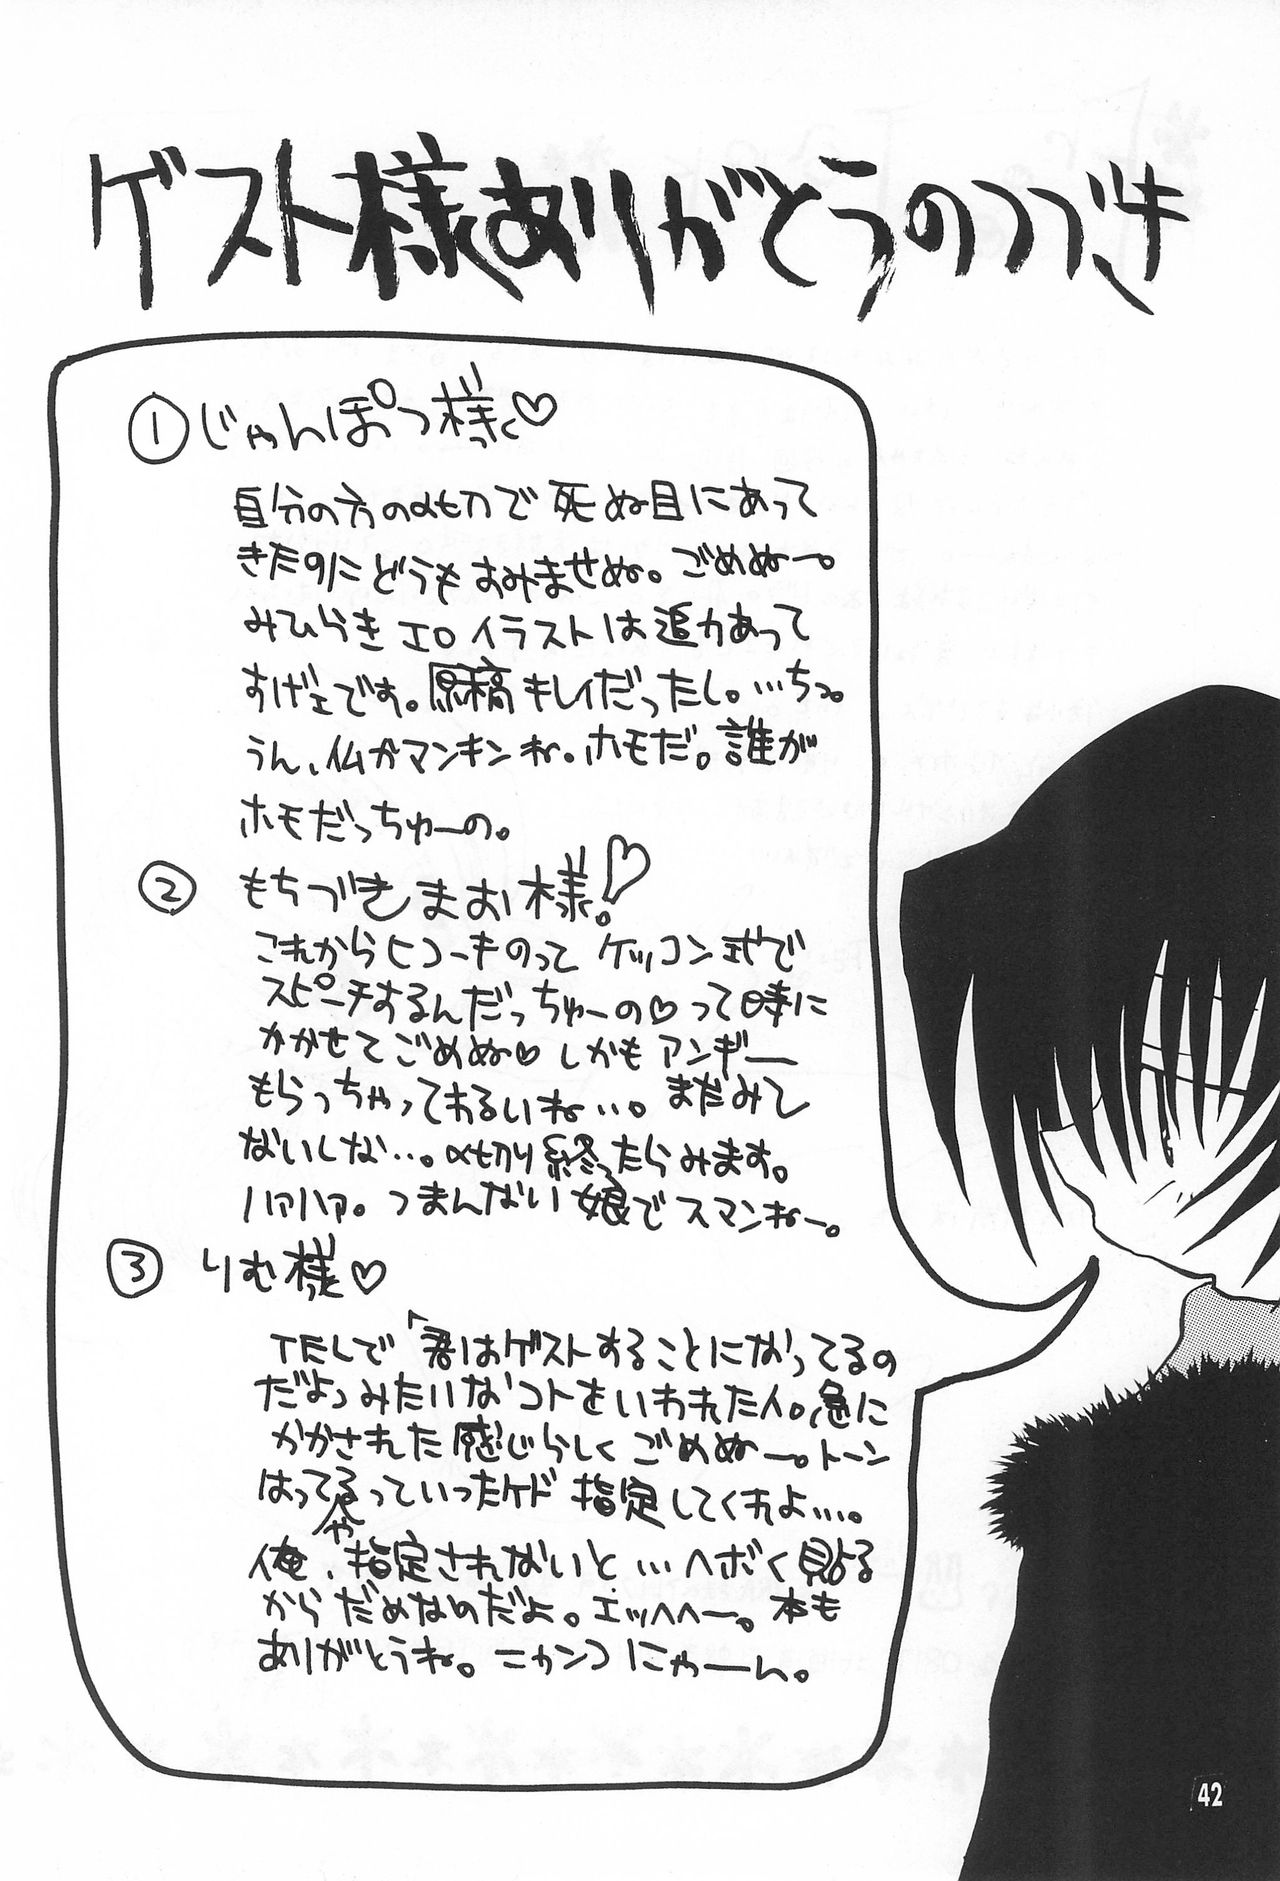 ゲスト様ありがとうのつづき
①じゃんぽつ様っ♡
自分の方の〆切で死ぬ目にあって
きたのにどうもすみませぬ。ごめぬー。
みひらきエロイラストは迫力あって
すげェです。原稿キレイだったし。…ちっ。
うん、仏がマンキンね。ホモだ。誰が
ホモだっちゅーの。
② もちづきまお様!♡
これからヒコーキのって ケッコン式で
スピーチするんだっちゅーの♡って時に
かかせてごめぬ♡しかも アンギー
もらっちゃっておるいね…。まだみし
ないしな…。〆切り終ったらみます。
ハァハァ。つまんない娘でスマンねー。
③ りむ様♡
TELで「君はゲストすることになってるの
だよ」みたいなコトをいわれた人。急に
かかされた感じらしくごめぬー。トーン
はってるっていったケド 指定してくれよ…。
俺、指定されないと…ヘボく貼る
や
からだめなのだよ。エッヘヘー。本も
ありがとうね。ニャンコにゃーん。
42